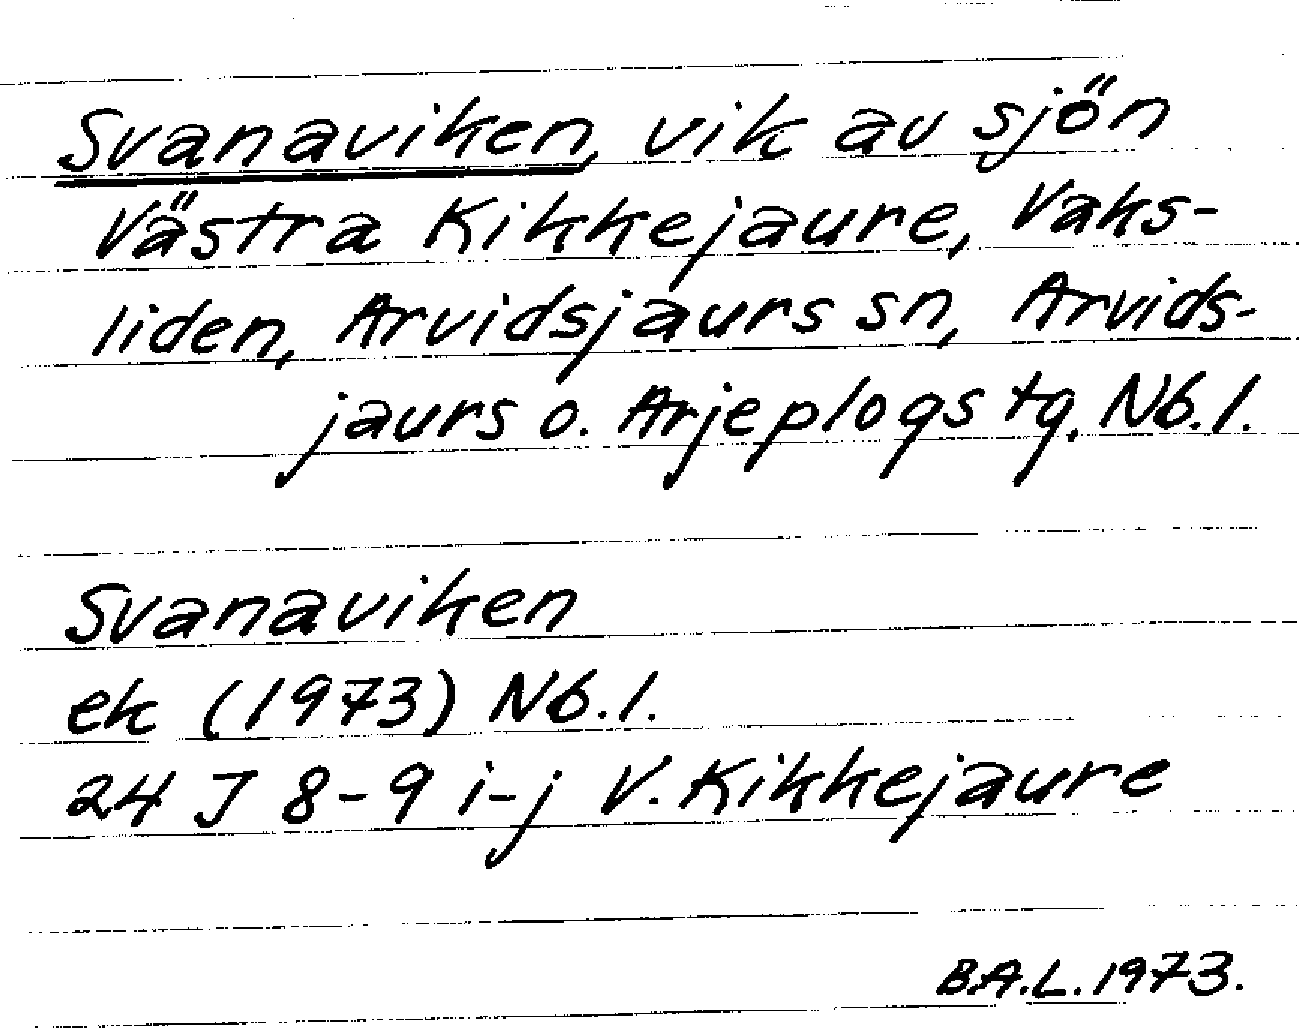 Svanaviken, vik av sjön
Västra Kikkejaure, Vaks-
liden, Arvidsjaurs sn, Arvids-
jaurs o. Arjeplogs tg. Nb.l.
Svanaviken
ek (1973) Nb.l.
24 J 8-9 i-j V. Kikkejaure
B.A.L. 1973.